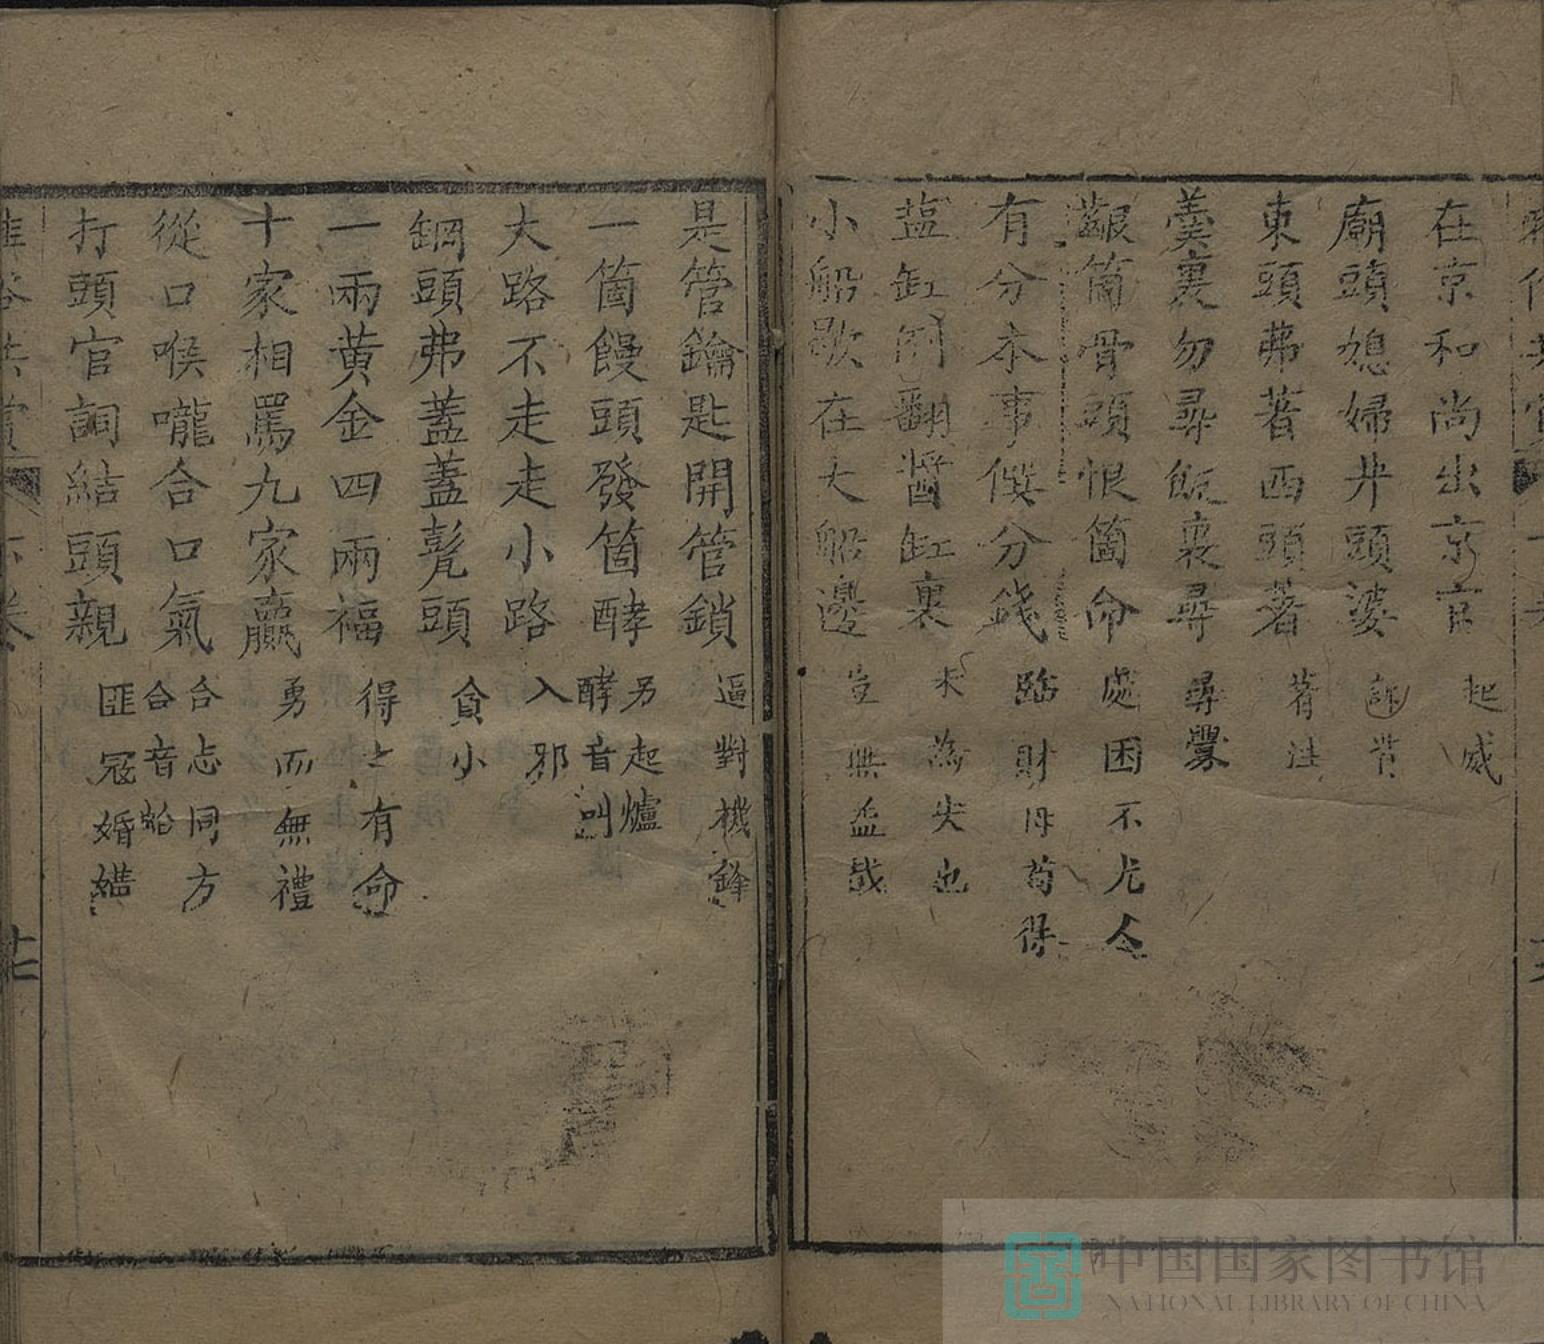 在京和尚出京官 起威
廟頭媳婦丼頭婆
東頭弗著西頭著 著注
羹裏勿尋飯裏尋 尋釁
齦箇骨頭恨箇命 處困不尤人
有分本事㑨分錢 臨財毋苟得
藍缸翻醬缸裏 未為失也
小船歇在大船邊 豈無益哉
是管鑰匙開管鎖 逗對機鋒
一箇饅頭發箇酵 另起爐 酵音叫
大路不走走小路 入邪
鋼頭弗蓋蓋甏頭 貪小
一兩黃金四兩福 得之有命
十家相罵九家贏 勇而無禮
從口喉嚨合口氣 合志同方 合音蛤
打頭官詞結頭親 匪寇婚媾
十七
中国国家图书馆
NATIONAL LIBRARY OF CHINA